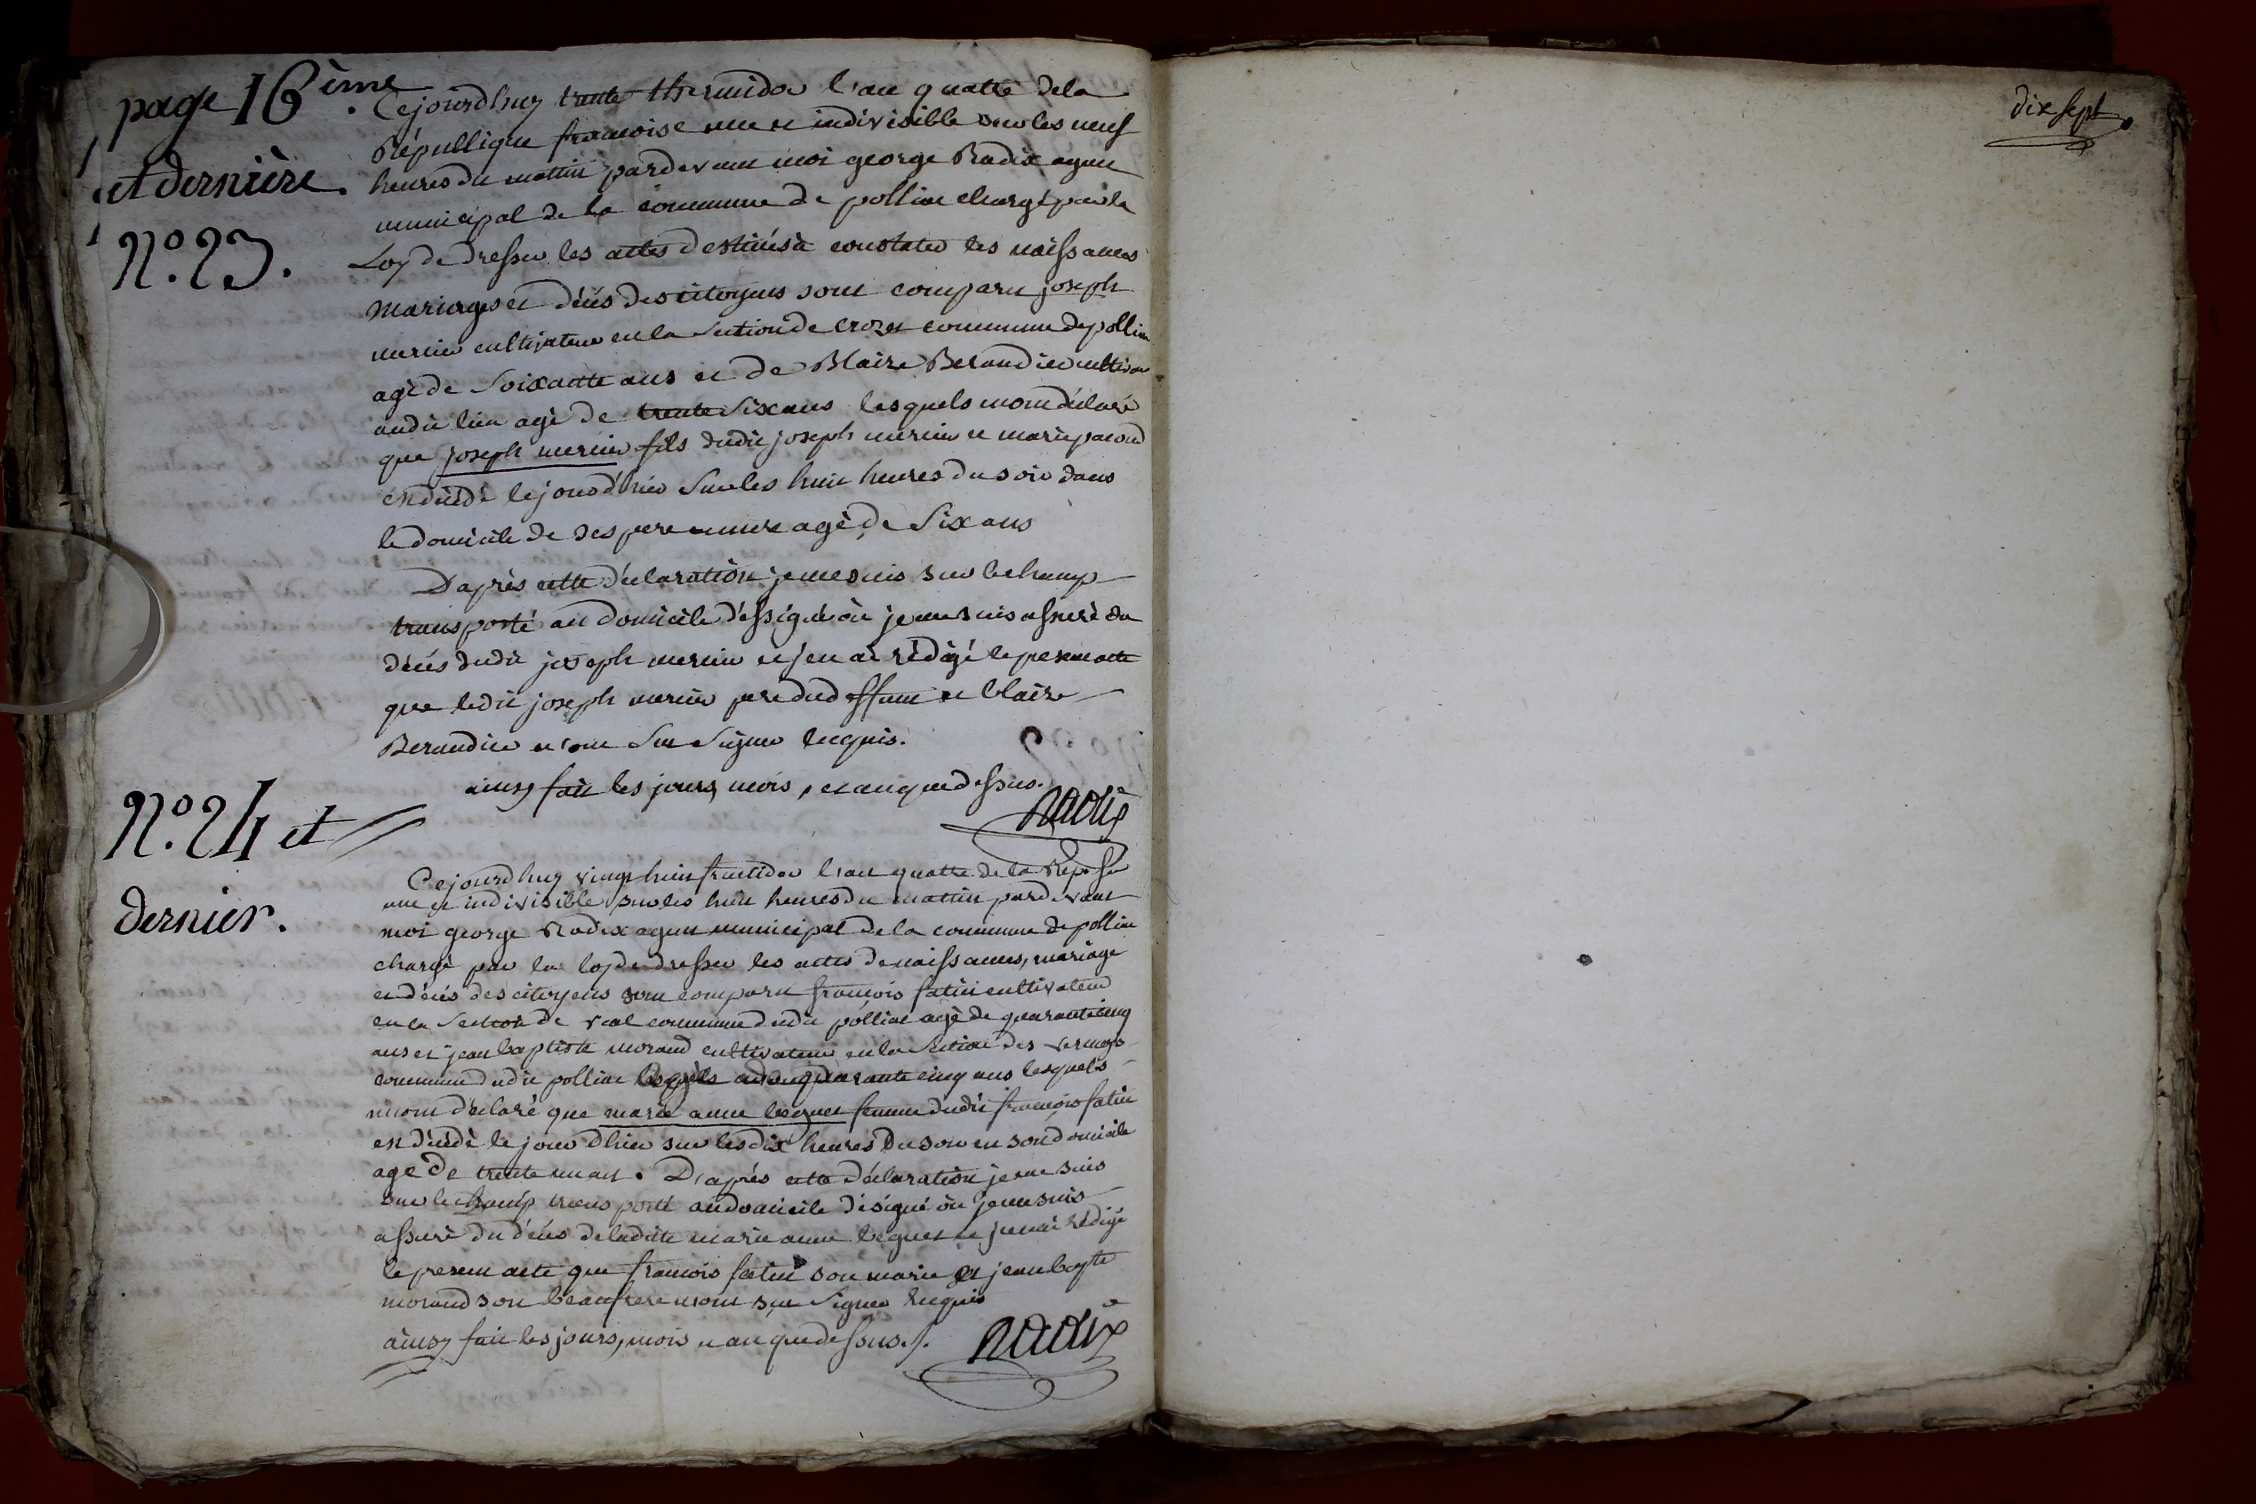 page 16ème
et dernière.
N°. 23.
Cejourdhuy trente thermidor l'an quatre dela
République francoise une et indivisible sur les neuf
heures du mattin pardevant moi george Radix agent
municipal de la commune de polliat chargé par la
Loy de dresser les actes destinés à constater les naissances
mariages et décés des citoyens sont comparu joseph
mercier cultivateur en la section de crozet commune de polliat
agé de soixante ans et de Blaize Beraudier cultivateur
audit lieu agé de trente six ans lesquels mont déclaré
que joseph mercier fils dudit joseph mercier et marie
est décédé le jour d'hier sur les huit heures du soir dans
le domicile de ses pere et mere agé de six ans
D'après cette déclaration je me suis sur le champ
transporté au domicile déssigné où je me suis assuré du
décés dudit joseph mercier et j'en ai rédigé le present acte
que ledit joseph mercier pere du deffunt et blaize
Beraudier n'ont su signer requis.
ainsy fait les jours, mois, et an que dessus.
Radix
N°. 24 et
dernier.
Cejourdhuy vingt huit fructidor l'an quatre de la Rep. fse
une et indivisible sur les huit heures du mattin pardevant
moi george Radix agent municipal de la commune de polliat
chargé par la loy de dresser les actes de naissances, mariage
et décés des citoyens sont comparu francois fatin cultivateur
en la section de vial commune dudit polliat agé de quarante cinq
ans et jean baptiste morand cultivateur en la section des
commune dudit polliat quarante cinq ans lesquels
mont déclaré que marie anne femme dudit francois fatin
est décédé le jour d'hier sur les dix heures du soir en son domicile
age de trente un ans. D'aprés cette déclaration je me suis
sur le champ transporté au domicile désigné où je me suis
assuré du décés de ladite marie anne et j'en ai rédigé
le present acte que francois fatin son marie et jean bapte
morand son beaufrere n'ont su signer requis
ainsy fait les jours, mois et an que dessus./.
Radix
dix sept